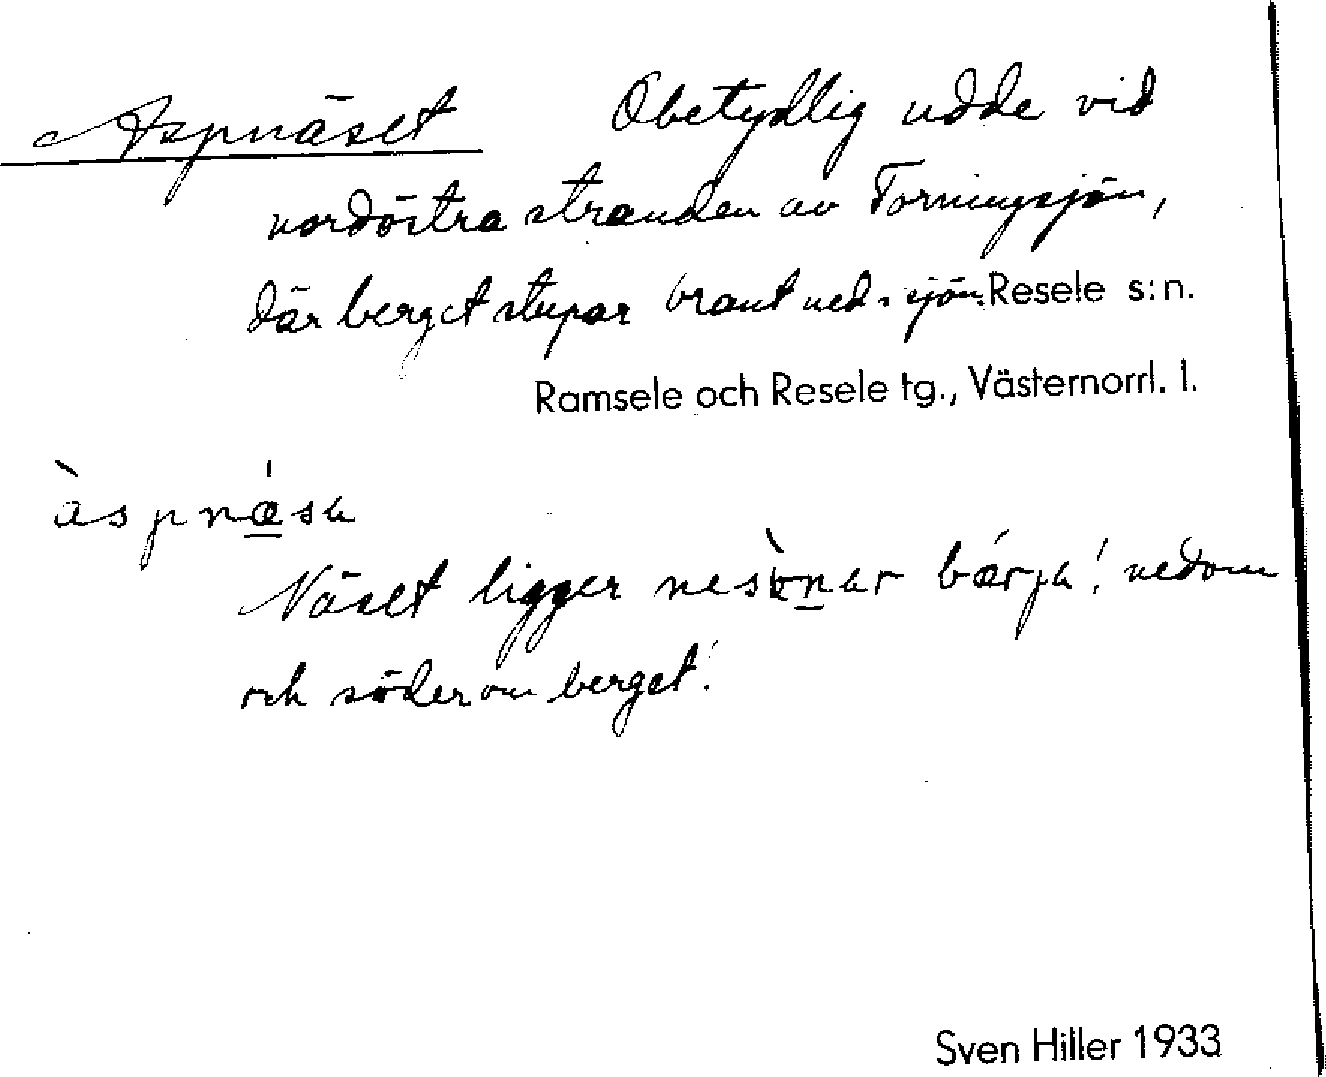 Aspnäset Obetydlig udde vid
nordöstra stranden av Torningsjön,
där berget stupar brant ned i sjön. Resele s:n.
Ramsele och Resele tg., Västernorrl. l.
àspnǽsa
Näset ligger bærja! nedom
och söder om berget!
Sven Hiller 1933